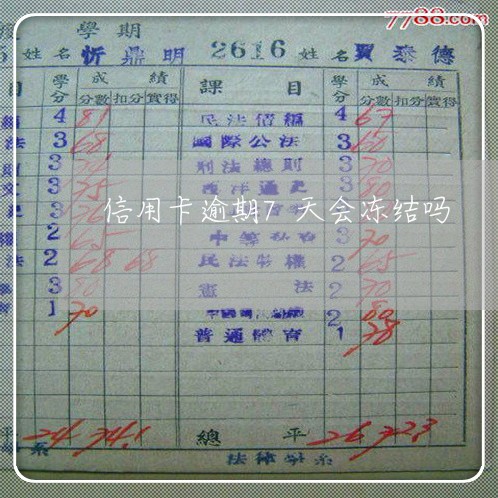 7788.com
學期
5 姓名 忻鼎明 2616 姓名 賈泰德
目 學分 成績 分數 扣分 實得 課目 學分 成績 分數 扣分 實得
4 81 民法債編 4 67
法 3 68 國際公法 3 60
3 刑法總則 3 70
3 75 西洋通史 3 80
信用卡逾期7天会冻结吗
2 65 3 70
法 2 68 68 民法物權 2 65
3 80 憲法 2 70
1 70 2 80
普通體育 1 78
平 24 74.1 總平 26 72.3
系 法律學系